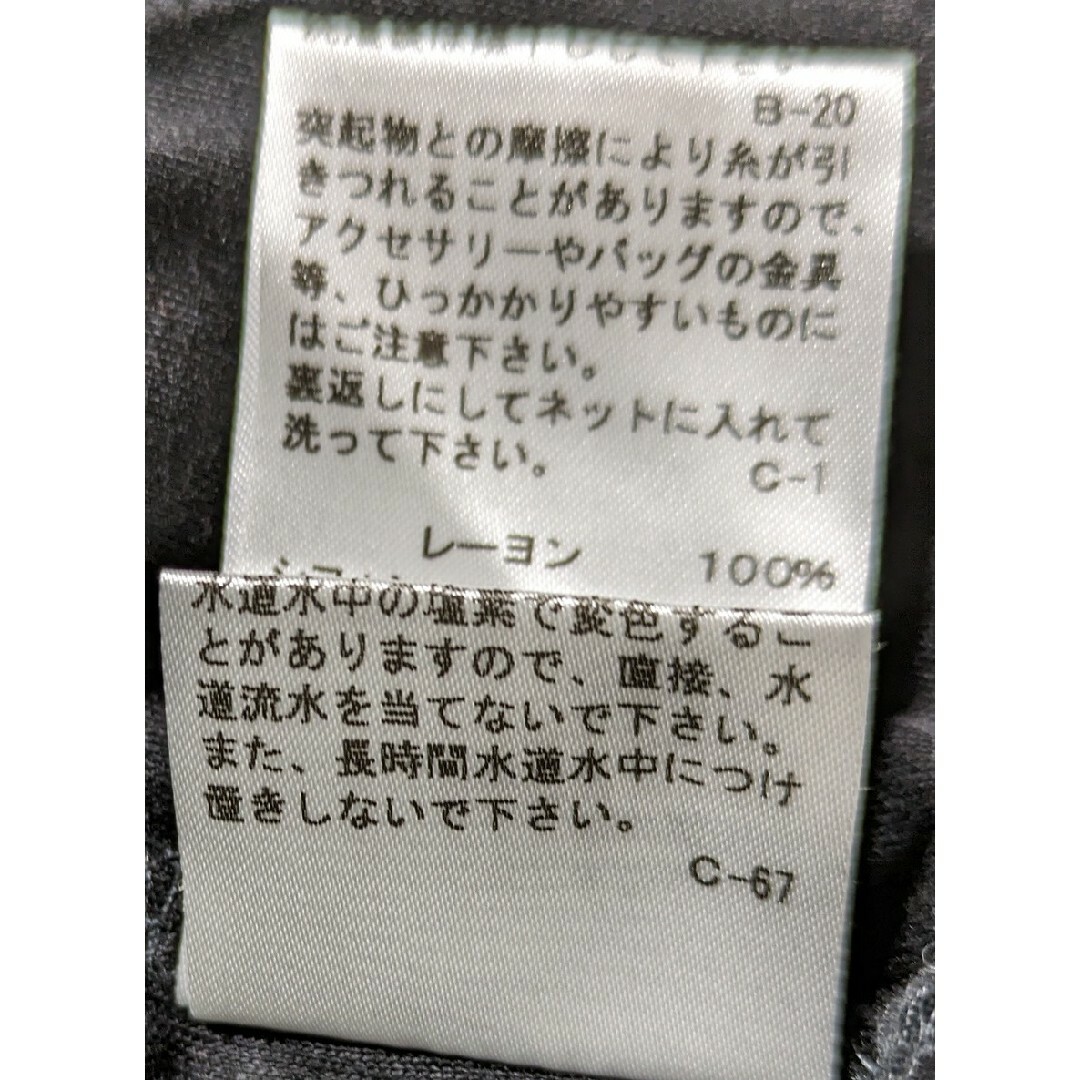 B-20
突起物との摩擦により糸が引
きつれることがありますので、
アクセサリーやバッグの金具
等、ひっかかりやすいものに
はご注意下さい。
裏返しにしてネットに入れて
洗って下さい。
C-1
レーヨン 100%
水道水中の塩素で変色するこ
とがありますので、直接、水
道流水を当てないで下さい。
また、長時間水道水中につけ
置きしないで下さい。
C-67